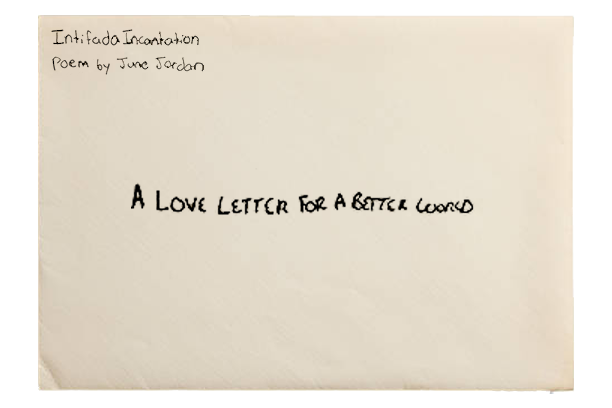 Intifada Incantation
Poem by June Jordan
A LOVE LETTER FOR A BETTER WORLD